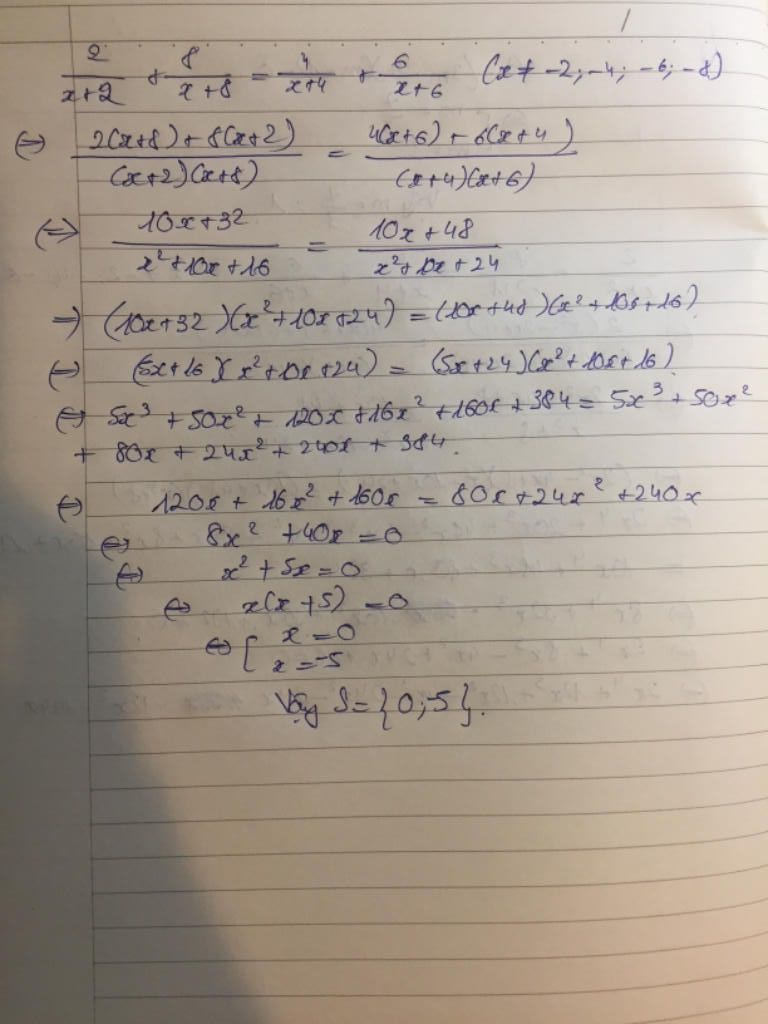 1
2/(x+2) + 8/(x+8) = 4/(x+4) + 6/(x+6) (x ≠ -2; -4; -6; -8)
⇔ (2(x+8) + 8(x+2))/((x+2)(x+8)) = (4(x+6) + 6(x+4))/((x+4)(x+6))
⇔ (10x+32)/(x²+10x+16) = (10x+48)/(x²+10x+24)
⇒ (10x+32)(x²+10x+24) = (10x+48)(x²+10x+16)
⇔ (5x+16)(x²+10x+24) = (5x+24)(x²+10x+16)
⇔ 5x³ + 50x² + 120x + 16x² + 160x + 384 = 5x³ + 50x²
+ 80x + 24x² + 240x + 384.
⇔ 120x + 16x² + 160x = 80x + 24x² + 240x
⇔ 8x² + 40x = 0
⇔ x² + 5x = 0
⇔ x(x+5) = 0
⇔ [ x = 0
x = -5
Vậy S = {0; -5}.